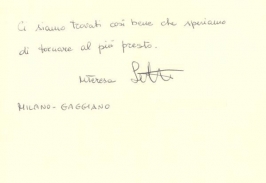 Ci siamo trovati così bene che speriamo
di tornare al più presto.
MILANO - GAGGIANO